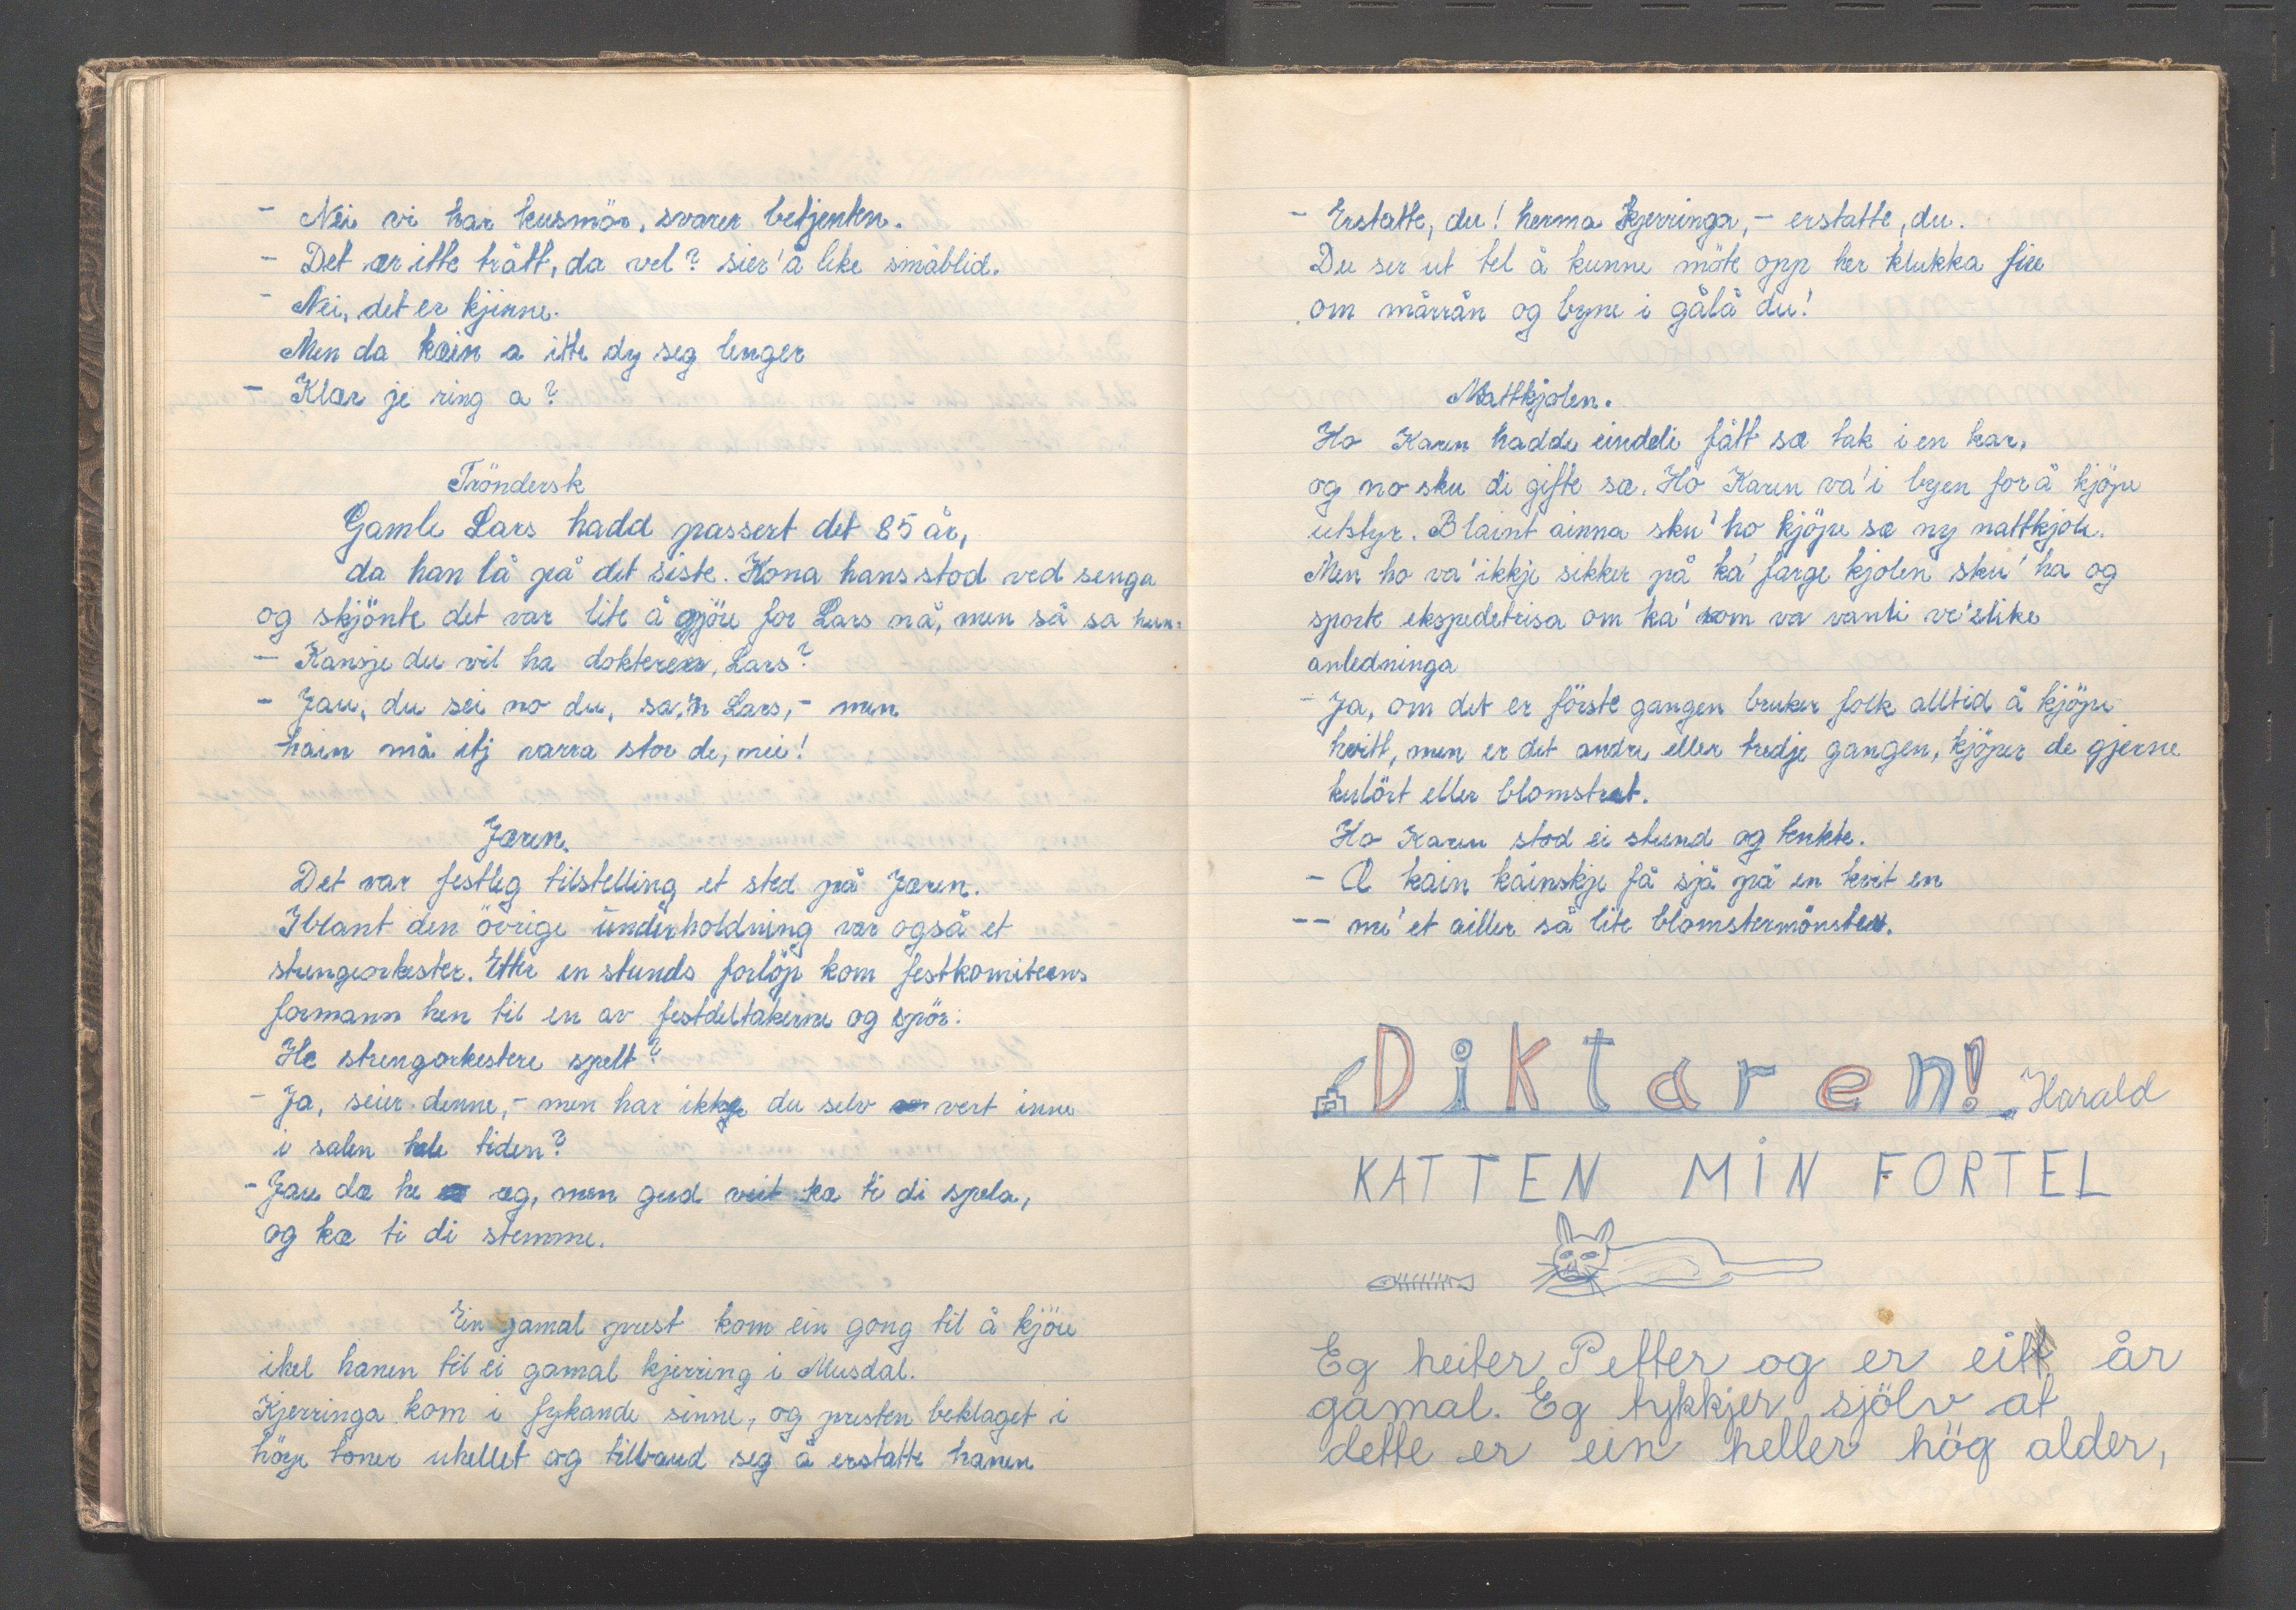 - Nei vi har kusmör, svarer betjenten.
- Det ær itte trått, da vel? sier'å like småblid.
- Nei, det er kjinne.
Men da kæin a itte dy seg lenger
- Klær je ring a?
Tröndersk
Gamle Lars hadd passert det 85 år,
da han lå på det siste. Kona hans stod ved senga
og skjönte det var lite å gjöre for Lars nå, men så sa hun:
- Kansje du vil ha dokteren, Lars?
- Jau, du sei no du, sa'n Lars, - men
hain må itj varra stor de, nei!
Jæren.
Det var festleg tilstelling et sted på Jæren.
Iblant den övrige underholdning var også et
strengeorkester. Etter en stunds forlöp kom festkomiteens
formann hen til en av festdeltakerne og spör:
He strengorkestere spelt?
- Ja, seier denne, - men har ikkje du selv vert inne
i salen hele tiden?
- Jau dæ he æg, men gud veit kæ ti di spela,
og kæ ti di stemme.
Ein gamal prest kom ein gong til å kjöre
ihel hanen til ei gamal kjerring i Musdal.
Kjerringa kom i fykande sinne, og presten beklaget i
höye toner uhellet og tilbaud seg å erstatte hanen
- Erstatte, du! herma kjerringa, - erstatte, du.
Du ser ut tel å kunne möte opp her klukka fire
om mårrån og byne i gålå du!
Nattkjolen.
Ho Karen hadde eindeli fått sæ tak i en kar,
og no sku di gifte sæ. Ho Karen va' i byen for å kjöpe
utstyr. Blaint ainna sku' ho kjöpe sæ ny nattkjole.
Men ho va' ikkje sikker på ka' farge kjolen sku' ha og
sporte ekspedetrisa om ka' som va vanli ve' slike
anledninga
- Ja, om det er förste gangen bruker folk alltid å kjöpe
hvitt, men er det andre eller tredje gangen, kjöper de gjerne
kulört eller blomstret.
Ho Karen stod ei stund og tenkte.
- Æ kain kainskje få sjå på en kvit en
-- me' et ailler så lite blomstermönster.
Diktaren! Harald
KATTEN MIN FORTEL
Eg heiter Petter og er eitt år
gamal. Eg tykkjer sjölv at
dette er ein heller hög alder,